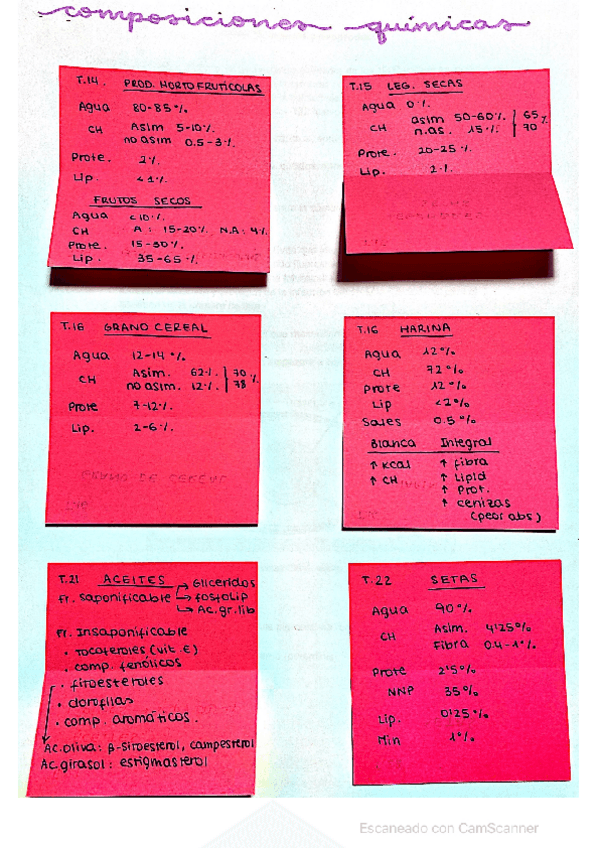 composiciones químicas
T.14. PROD. HORTOFRUTÍCOLAS
Agua 80-85%
CH Asim 5-10%
no asim 0.5-3%
Prote. 2%
Lip. <1%
FRUTOS SECOS
Agua <10%
CH A: 15-20% N.A: 4%
Prote: 15-30%
Lip. 35-65%
T.15 LEG. SECAS
Agua 0%
CH asim 50-60% 65%
n.as. 15% 70
Prote. 20-25%
Lip. 2%
T.16 GRANO CEREAL
Agua 12-14%
CH Asim. 62% 70%
no asim. 12% 78
Prote 7-12%
Lip. 2-6%
T.16 HARINA
Agua 12%
CH 72%
Prote 12%
Lip <2%
Sales 0.5%
Blanca Integral
↑ Kcal ↑ fibra
↑ CH ↑ Lipid
↑ Prot.
↑ cenizas
(peor abs)
T.21 ACEITES
Fr. saponificable → Gliceridos
→ fosfoLip
→ Ac.gr.lib
Fr. Insaponificable
· Tocoferoles (vit. E)
· comp. fenólicos
· fitoesteroles
· clorofilas
· comp. aromáticos.
Ac.oliva: β-sitoesterol, campesterol
Ac.girasol: estigmasterol
T.22 SETAS
Agua 90%
CH Asim. 4'25%
Fibra 0.4-1%
Prote 2'5%
NNP 35%
Lip. 0'25%
Min 1%
Escaneado con CamScanner